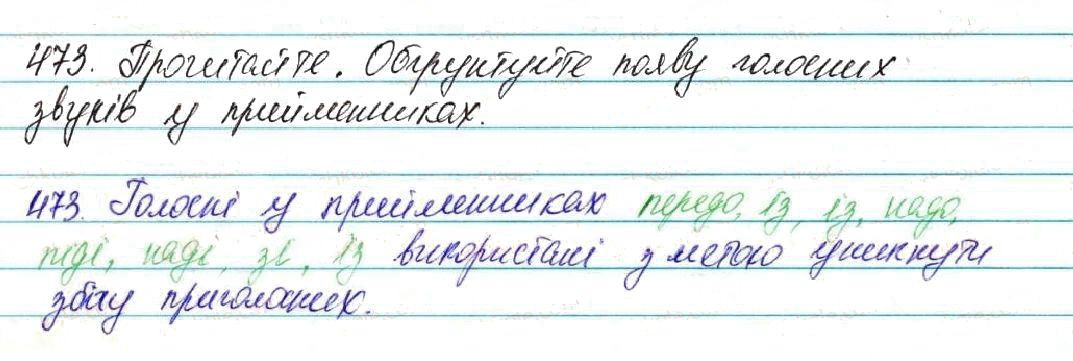 473. Прочитайте. Обґрунтуйте появу голосних
звуків у прийменниках.
473. Голосні у прийменниках передо, із, із, надо,
піді, наді, зі, із використані з метою уникнути
збігу приголосних.